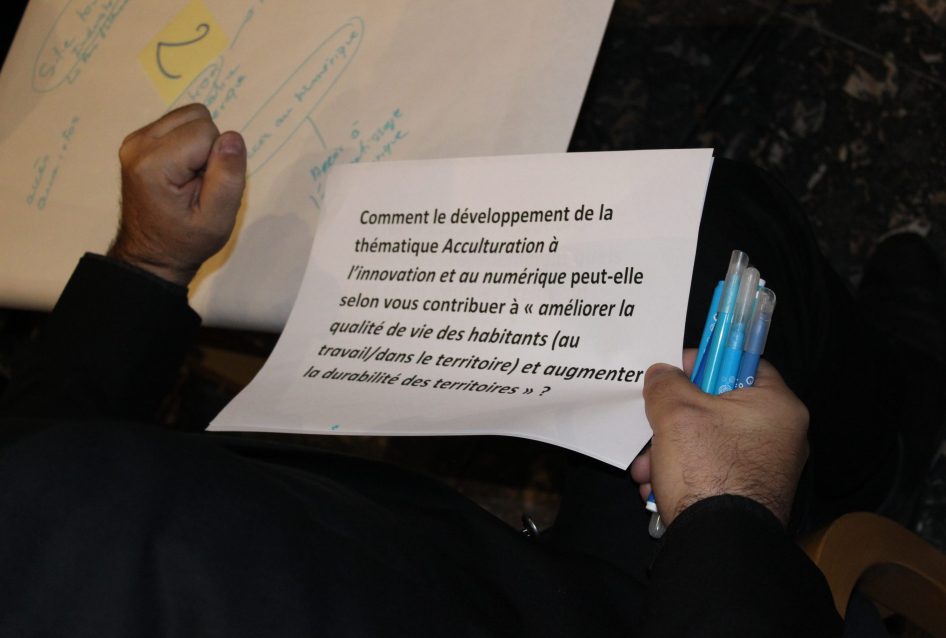 2
accès
aux infos
au numérique
Comment le développement de la
thématique Acculturation à
l'innovation et au numérique peut-elle
selon vous contribuer à « améliorer la
qualité de vie des habitants (au
travail/dans le territoire) et augmenter
la durabilité des territoires » ?